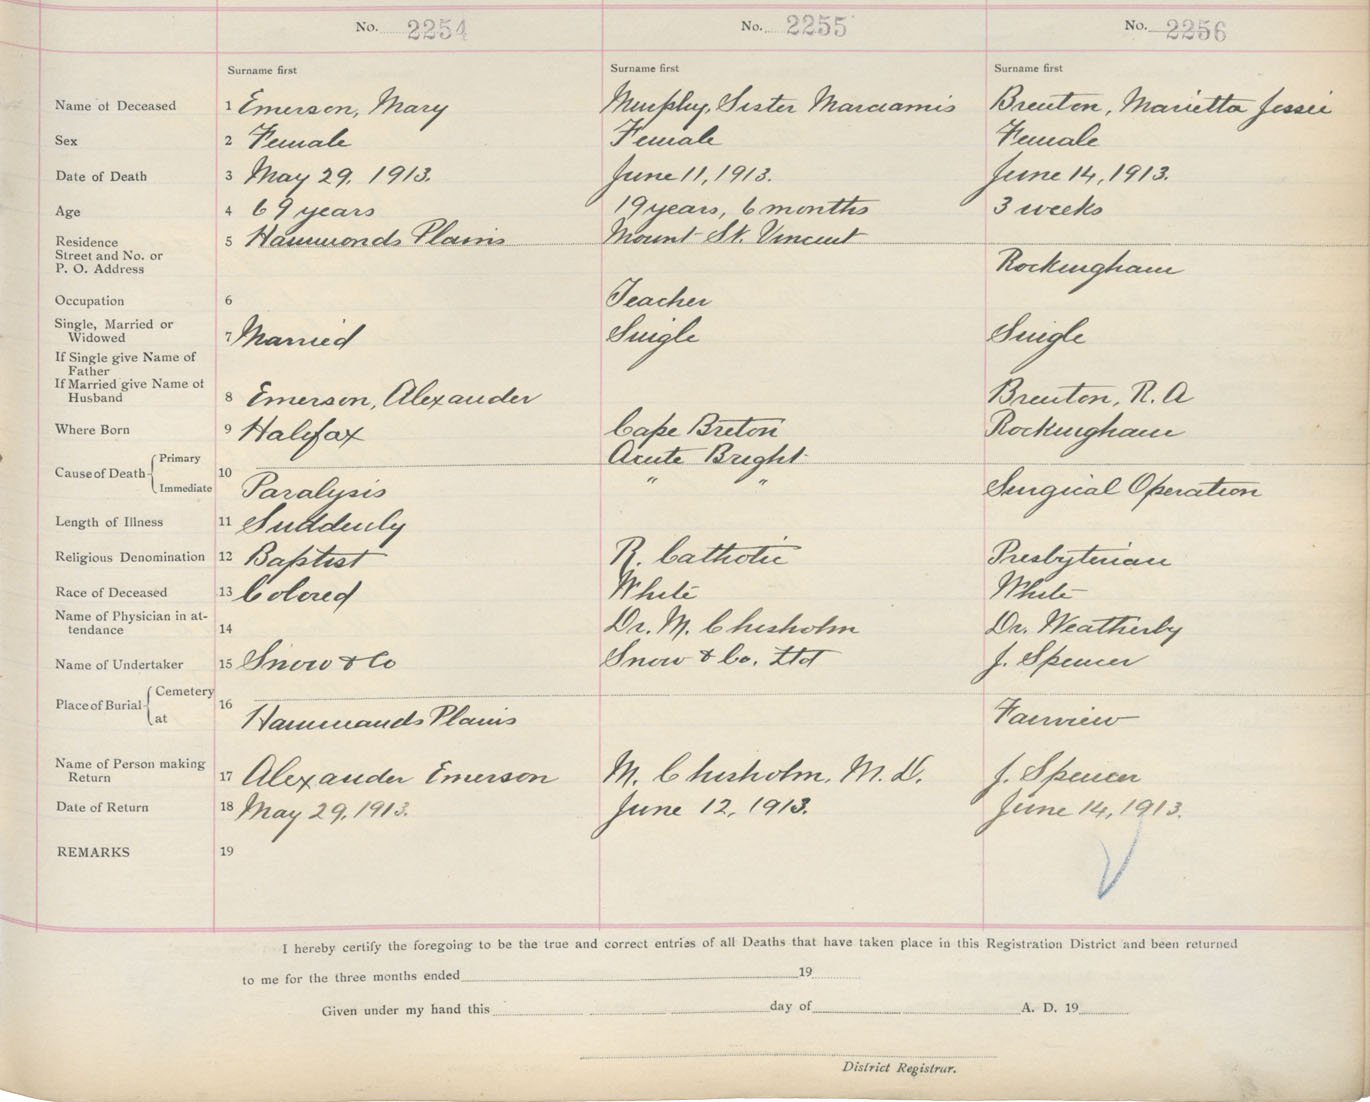 No. 2254 No. 2255 No. 2256
Surname first Surname first Surname first
Name of Deceased 1 Emerson, Mary Murphy, Sister Marciamis Brenton, Marietta Jessie
Sex 2 Female Female Female
Date of Death 3 May 29, 1913. June 11, 1913. June 14, 1913.
Age 4 69 years 19 years, 6 months 3 weeks
Residence 5 Hammonds Plains Mount St. Vincent
Street and No. or
P. O. Address Rockingham
Occupation 6 Teacher
Single, Married or
Widowed 7 Married Single Single
If Single give Name of
Father
If Married give Name of
Husband 8 Emerson, Alexander Brenton, R. A
Where Born 9 Halifax Cape Breton Rockingham
Cause of Death Primary 10 Acute Bright
Immediate Paralysis " " Surgical Operation
Length of Illness 11 Suddenly
Religious Denomination 12 Baptist R. Catholic Presbyterian
Race of Deceased 13 Colored White White
Name of Physician in at-
tendance 14 Dr. M. Chisholm Dr. Weatherby
Name of Undertaker 15 Snow & Co Snow & Co. Ltd J. Spencer
Place of Burial Cemetery 16
at Hammands Plains Fairview
Name of Person making
Return 17 Alexander Emerson M. Chisholm, M. D. J. Spencer
Date of Return 18 May 29, 1913. June 12, 1913. June 14, 1913.
REMARKS 19
I hereby certify the foregoing to be the true and correct entries of all Deaths that have taken place in this Registration District and been returned
to me for the three months ended 19
Given under my hand this day of A. D. 19
District Registrar.